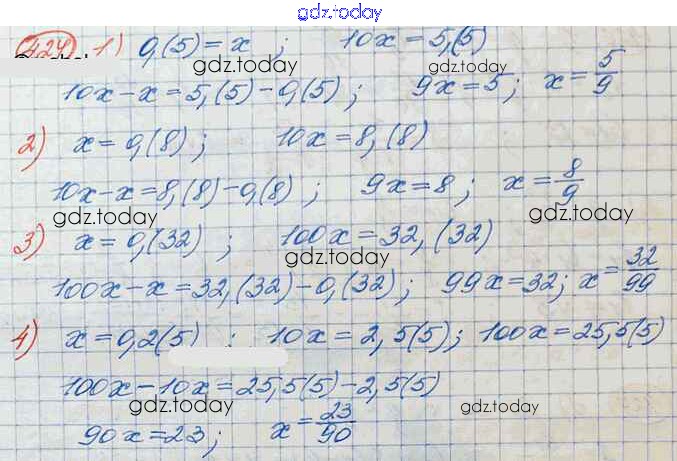 gdz.today
424 1) 0,(5)=x; 10x=5,(5)
gdz.today gdz.today
10x-x=5,(5)-0,(5); 9x=5; x=5/9
2) x=0,(8); 10x=8,(8)
10x-x=8,(8)-0,(8); 9x=8; x=8/9
gdz.today gdz.today
3) x=0,(32); 100x=32,(32)
gdz.today
100x-x=32,(32)-0,(32); 99x=32; x=32/99
4) x=0,2(5); 10x=2,5(5); 100x=25,5(5)
100x-10x=25,5(5)-2,5(5)
gdz.today gdz.today
90x=23; x=23/90